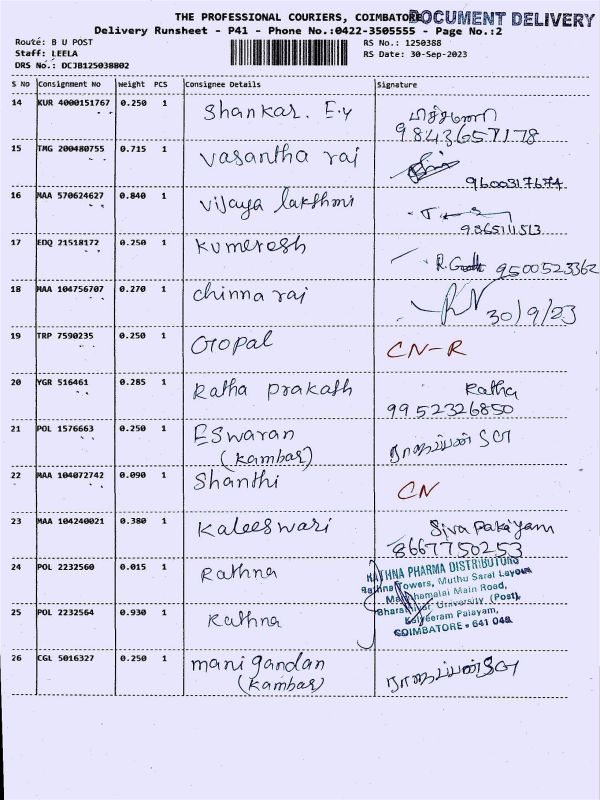 DOCUMENT DELIVERY
THE PROFESSIONAL COURIERS, COIMBATORE
Delivery Runsheet - P41 - Phone No.:0422-3505555 - Page No.:2
Route: B U POST RS No.: 1250388
Staff: LEELA RS Date: 30-Sep-2023
DRS No.: DCJB125038802
S No Consignment No Weight PCS Consignee Details Signature
14 KUR 4000151767 0.250 1 Shankar. E.y
9843657178
15 TMG 200480755 0.715 1 Vasantha raj
9600317674
16 MAA 570624627 0.840 1 Vijaya lakshmi
17 EDQ 21518172 0.250 1 Kumeresh 9500523362
18 MAA 104756707 0.270 1 chinna raj
30/9/23
19 TRP 7590235 0.250 1 Gopal CN-R
20 YGR 516461 0.285 1 Ratha prakash Ratha
9952326850
21 POL 1576663 0.250 1 Eswaran
(kambar)
22 MAA 104072742 0.090 1 Shanthi CN
23 MAA 104240021 0.380 1 Kaleeswari Siva Pakiyam
8667750253
24 POL 2232560 0.015 1 Rathna
RATHNA PHARMA DISTRIBUTORS
Rathna Towers, Muthu Saral Layout
Maruthamalai Main Road,
Bharathiyar University (Post),
Kalveeram Palayam,
COIMBATORE - 641 046
25 POL 2232564 0.930 1 Rathna
26 CGL 5016327 0.250 1 mani gandan
(kambar)